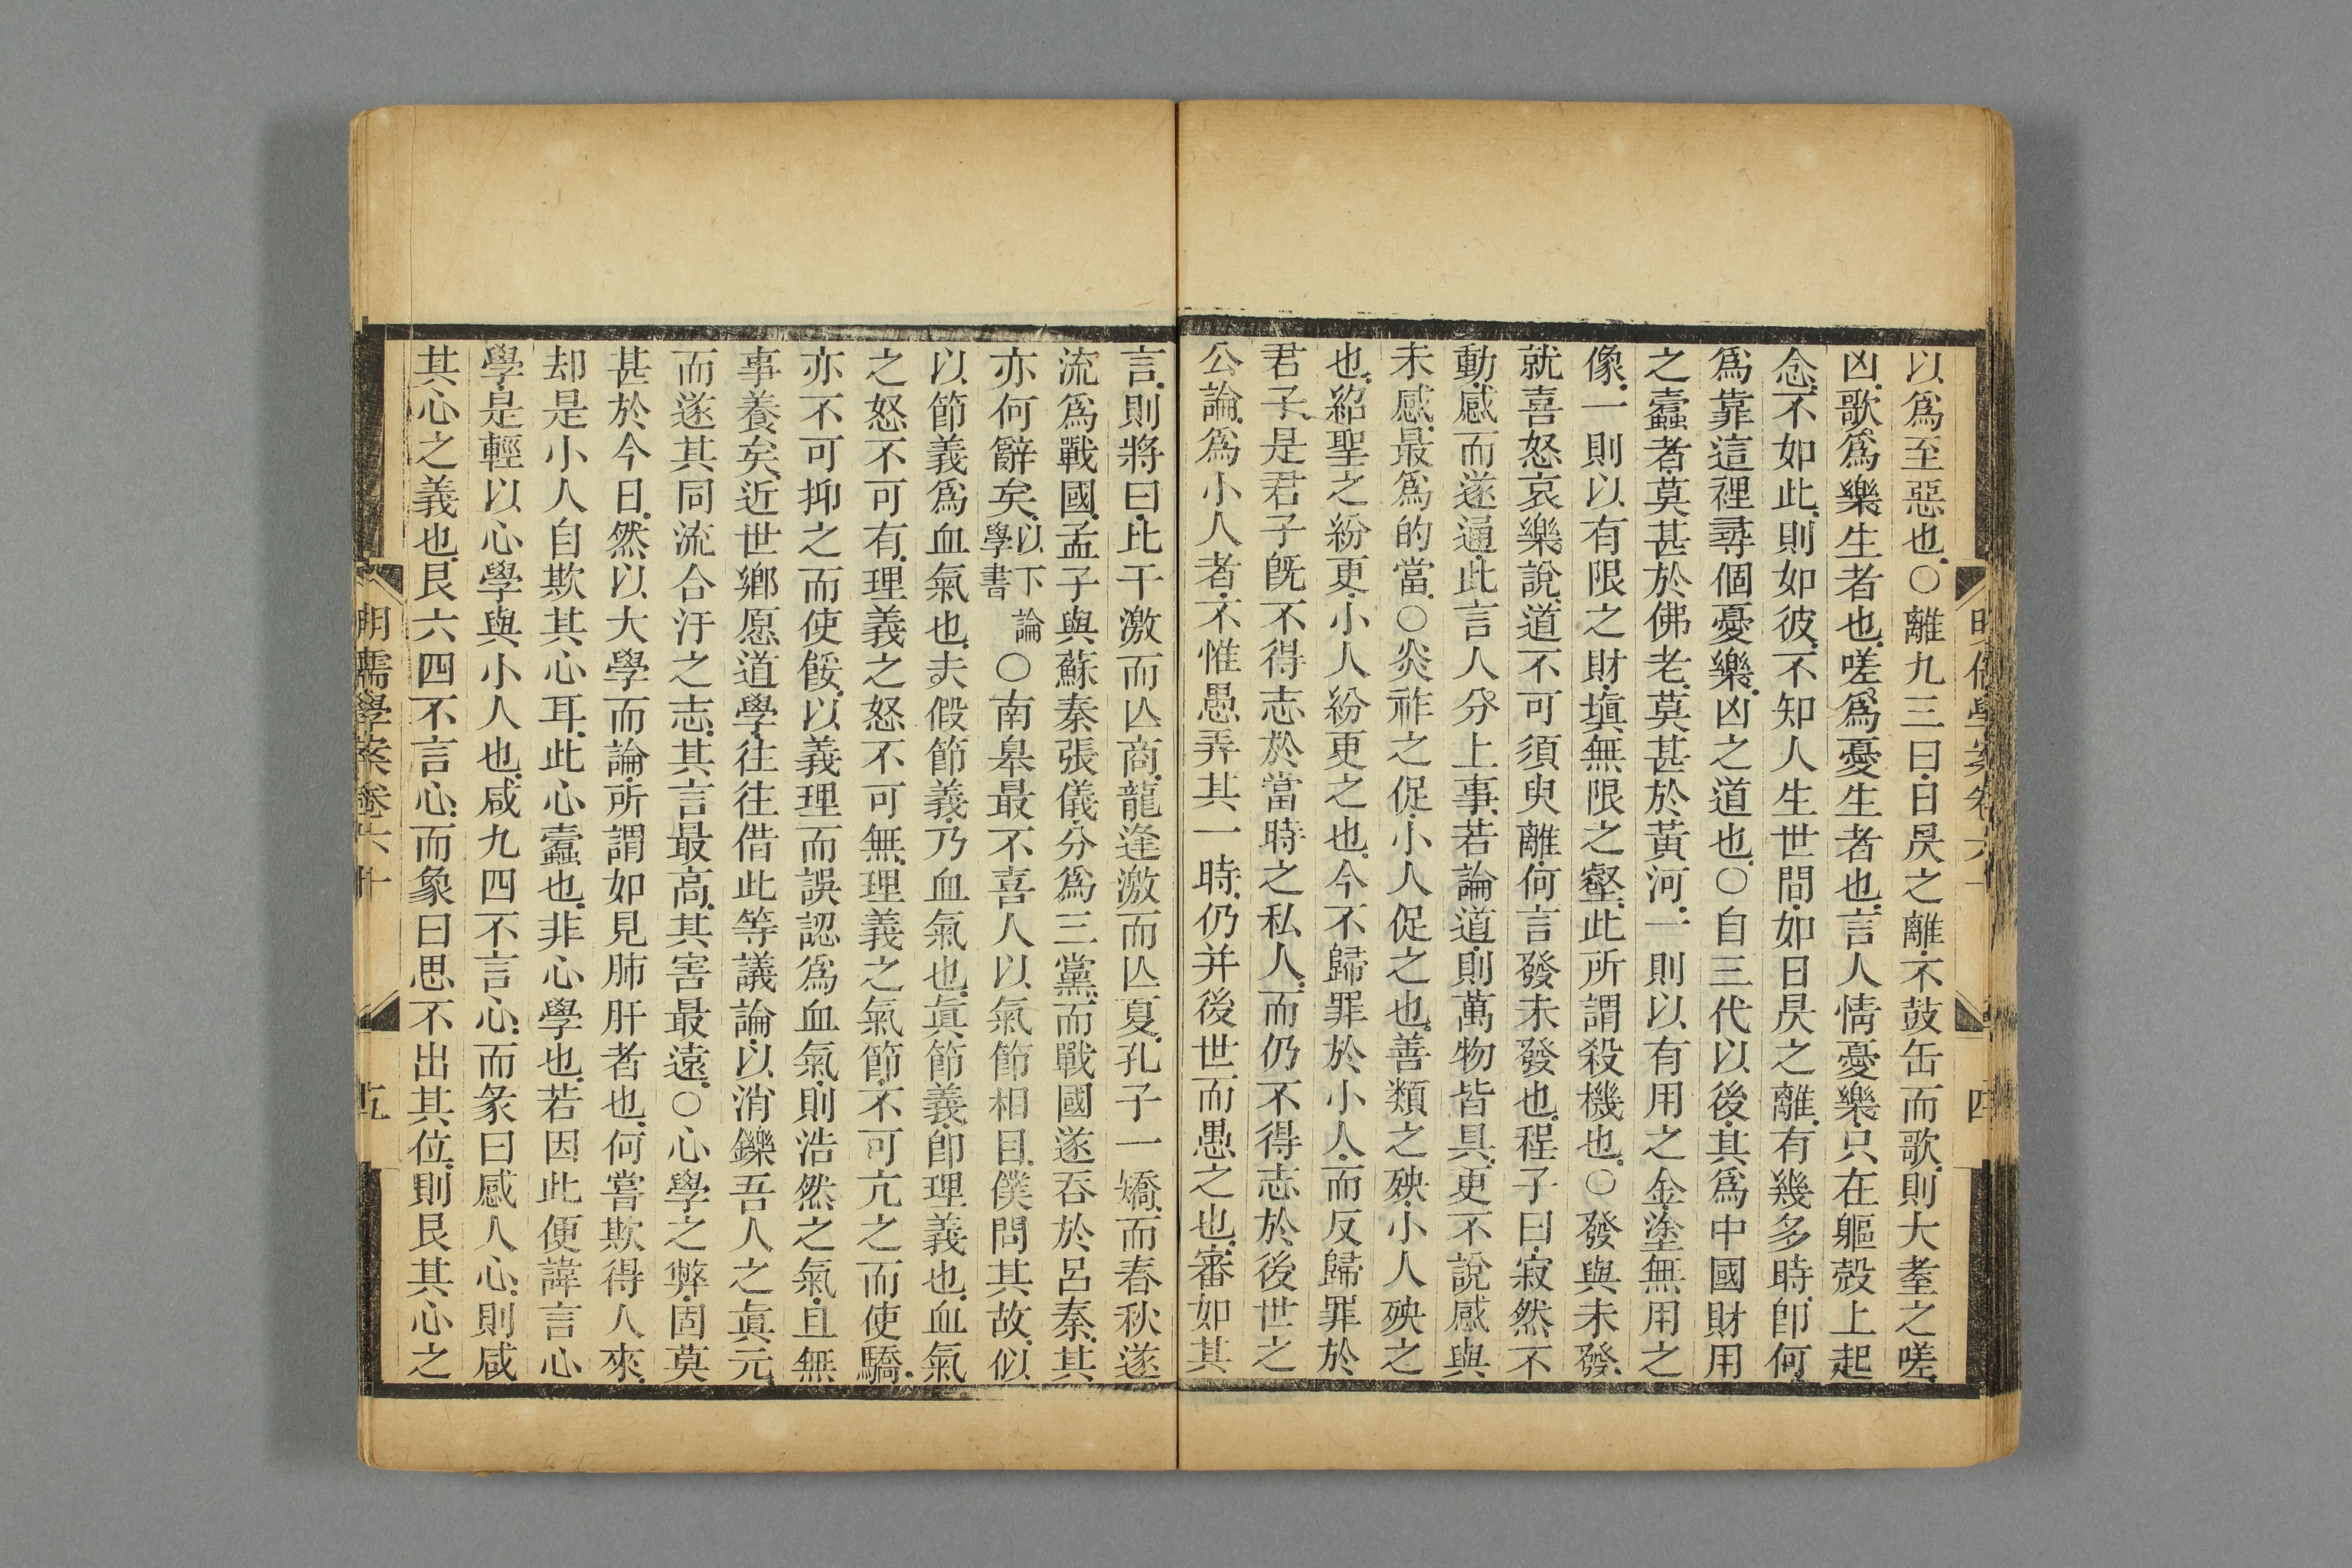 明儒學案卷六十
四
以爲至惡也○離九三曰日昃之離不鼓缶而歌則大耋之嗟
凶歌爲樂生者也嗟爲憂生者也言人情憂樂只在軀殼上起
念不如此則如彼不知人生世間如日昃之離有幾多時卽何
爲靠這裡尋個憂樂凶之道也○自三代以後其爲中國財用
之蠹者莫甚於佛老莫甚於黃河一則以有用之金塗無用之
像一則以有限之財塡無限之壑此所謂殺機也○發與未發
就喜怒哀樂說道不可須臾離何言發未發也程子曰寂然不
動感而遂通此言人分上事若論道則萬物皆具更不說感與
未感最爲的當○炎祚之促小人促之也善類之殃小人殃之
也紹聖之紛更小人紛更之也今不歸罪於小人而反歸罪於
君子是君子旣不得志於當時之私人而仍不得志於後世之
公論爲小人者不惟愚弄其一時仍并後世而愚之也審如其
言則將曰比干激而亾商龍逢激而亾夏孔子一矯而春秋遂
流爲戰國孟子與蘇秦張儀分爲三黨而戰國遂吞於呂秦其
亦何辭矣以下論學書○南皋最不喜人以氣節相目僕問其故似
以節義爲血氣也夫假節義乃血氣也眞節義卽理義也血氣
之怒不可有理義之怒不可無理義之氣節不可亢之而使驕
亦不可抑之而使餒以義理而誤認爲血氣則浩然之氣且無
事養矣近世鄉愿道學往往借此等議論以消鑠吾人之眞元
而遂其同流合汙之志其言最高其害最遠○心學之弊固莫
甚於今日然以大學而論所謂如見肺肝者也何嘗欺得人來
却是小人自欺其心耳此心蠹也非心學也若因此便諱言心
學是輕以心學與小人也咸九四不言心而彖曰感人心則咸
其心之義也艮六四不言心而象曰思不出其位則艮其心之
明儒學案卷六十
五